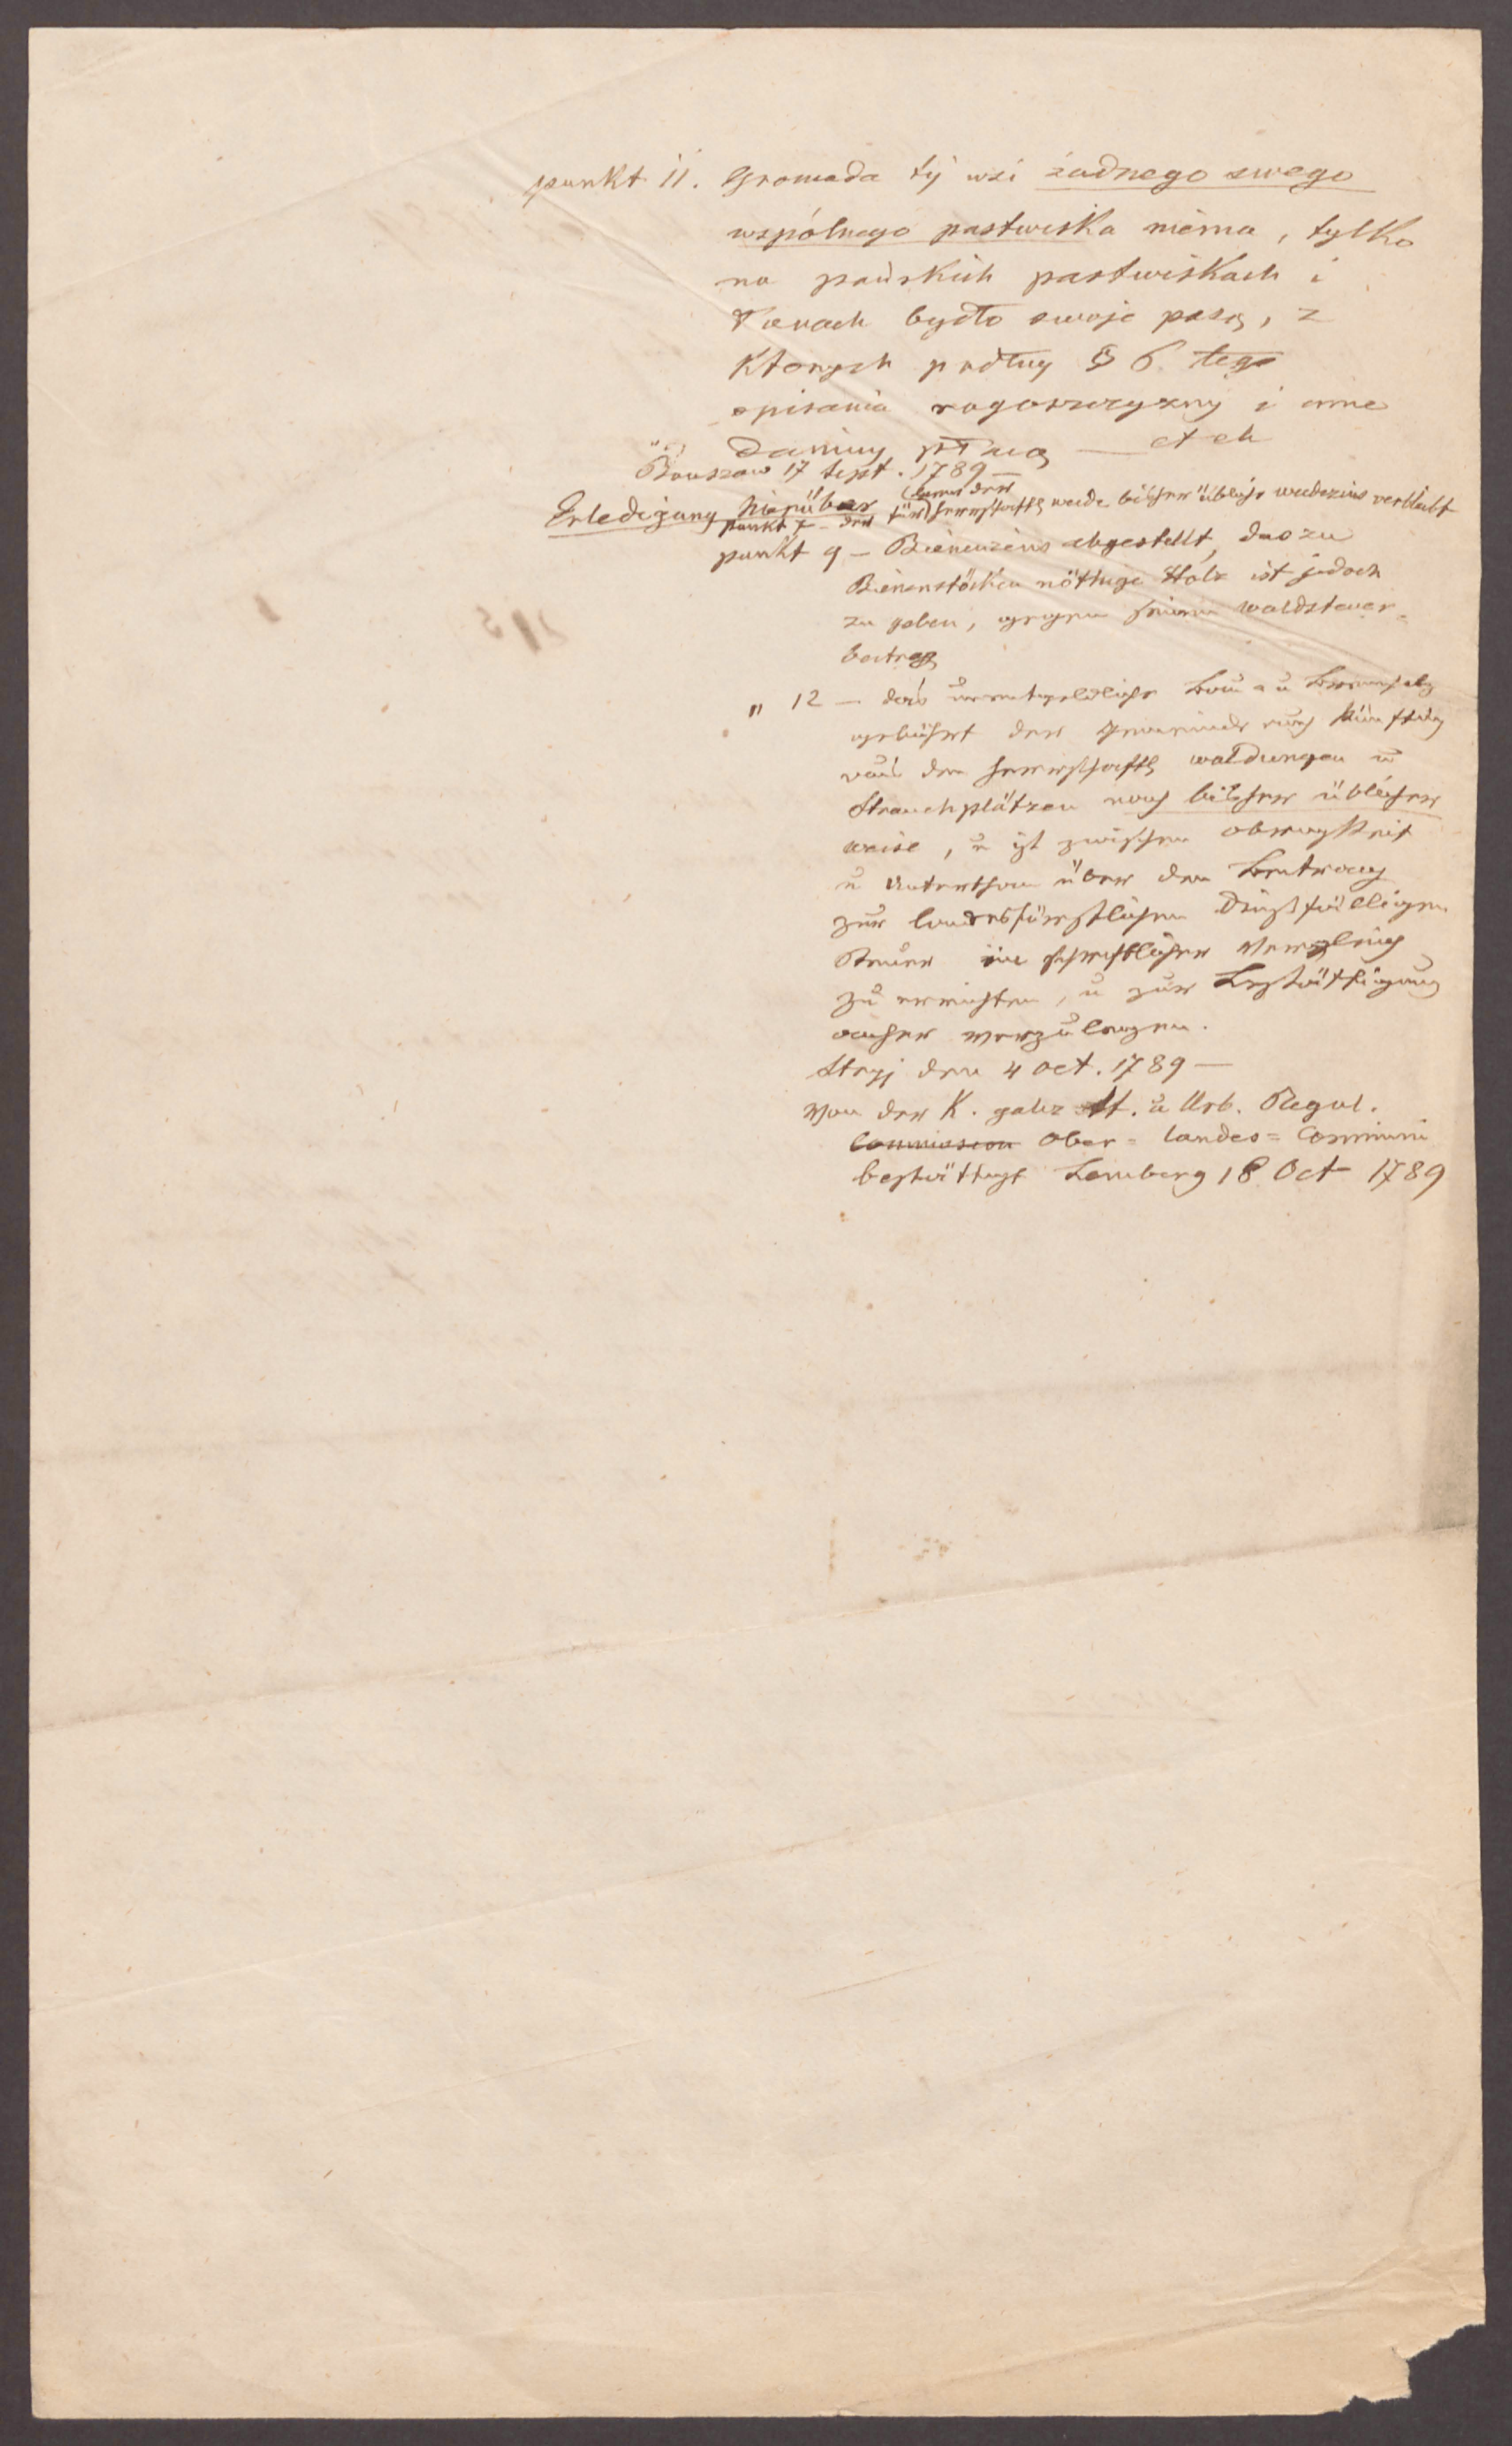 punkt 11. Gromada tý wsi żadnego swego
wspólnego pastwiska niema, tylko
na pańskich pastwiskach i
łanach bydło swoje pasą, z
których podług § 6. tego
opisania rogowszczyzny i inne
daniny płacą — etch
17 Sept. 1789 —
Erledigung hierüber
punkt 7 – der für herrschaftl weide bisher übliche weidezins verbleibt
punkt 9 – Bienenzins abgestellt, das zu
Bienenstöcken nöthige Holz ist jedoch
zu geben, gegen einen Waldsteuer-
beitrag
" 12 – das unentgeldliche Bau- u Brennholz
gebührt der Gemeinde auch künftig
aus den herrschaftl waldungen u
Strauchplätzen nach bisher üblicher
weise, u ist zwischen Obrigkeit
u Unterthan über den Beitrag
zur landesfürstlichen dießfälligen
Steuer ein schriftlicher Vergleich
zu errichten, u zur Bestättigung
anher vorzulegen.
Stryj den 4 Oct. 1789 —
Von der K. galiz St. u Urb. Regul.
Commission Ober = Landes = Commissi
bestättigt Lemberg 18 Oct 1789